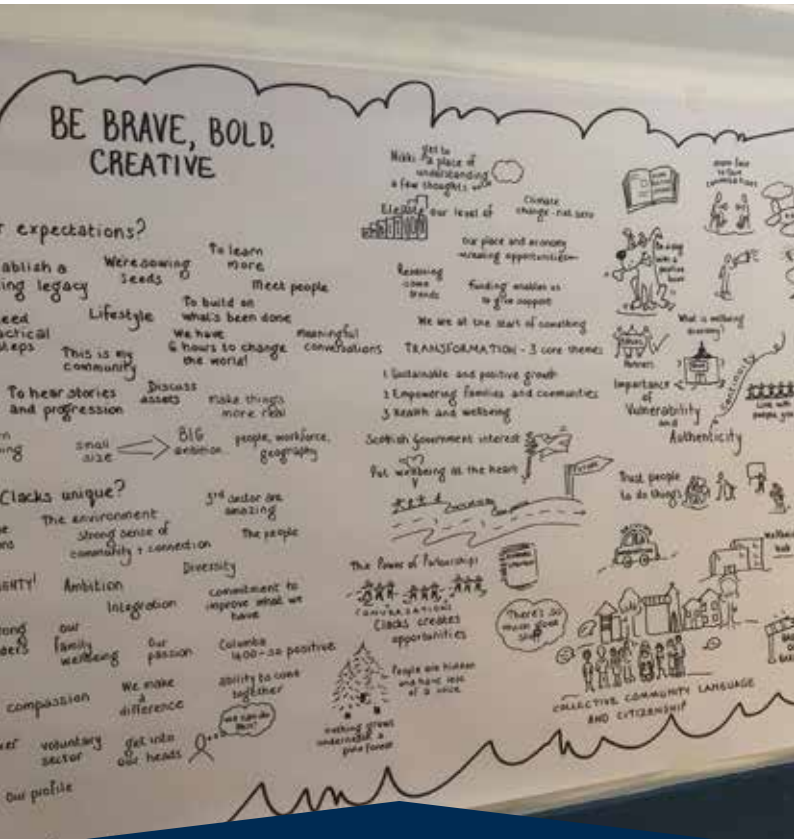 BE BRAVE, BOLD.
CREATIVE
expectations?
legacy
We're sowing
seeds
To learn
more
Meet people
Lifestyle
To build on
what's been done
This is my
community
We have
6 hours to change
the world!
meaningful
conversations
To hear stories
and progression
Discuss
assets
make things
more real
small
size
BIG
ambition
people, workforce,
geography
Clacks unique?
The environment
3rd sector are
amazing
strong sense of
community + connection
The people
Diversity
Ambition
Integration
commitment to
improve what we
have
our
family
wellbeing
Our
passion
Columba
1400 - so positive
compassion
We make
a
difference
ability to come
together
we can do
this!
voluntary
sector
get into
our heads
Our profile
Nikki
get to
a place of
understanding
a few thoughts
Elevate our level of
Climate
change - net zero
Our place and economy
creating opportunities
Reversing
some
trends
funding enables us
to give support
We are at the start of something
TRANSFORMATION - 3 core themes
1 Sustainable and positive growth
2 Empowering families and communities
3 Health and wellbeing
Scottish Government interest
Put wellbeing at the heart
FUTURE
The Power of Partnerships
CONVERSATIONS
Clacks creates
opportunities
People are hidden
and have less
of a voice
nothing grows
underneath a
pine forest
more face
to face
conversations
What is wellbeing
economy?
Partners
Importance
of
Vulnerability
and
Authenticity
Continuity
Trust people
to do things
There's so
much good
stuff
COLLECTIVE COMMUNITY LANGUAGE
AND CITIZENSHIP